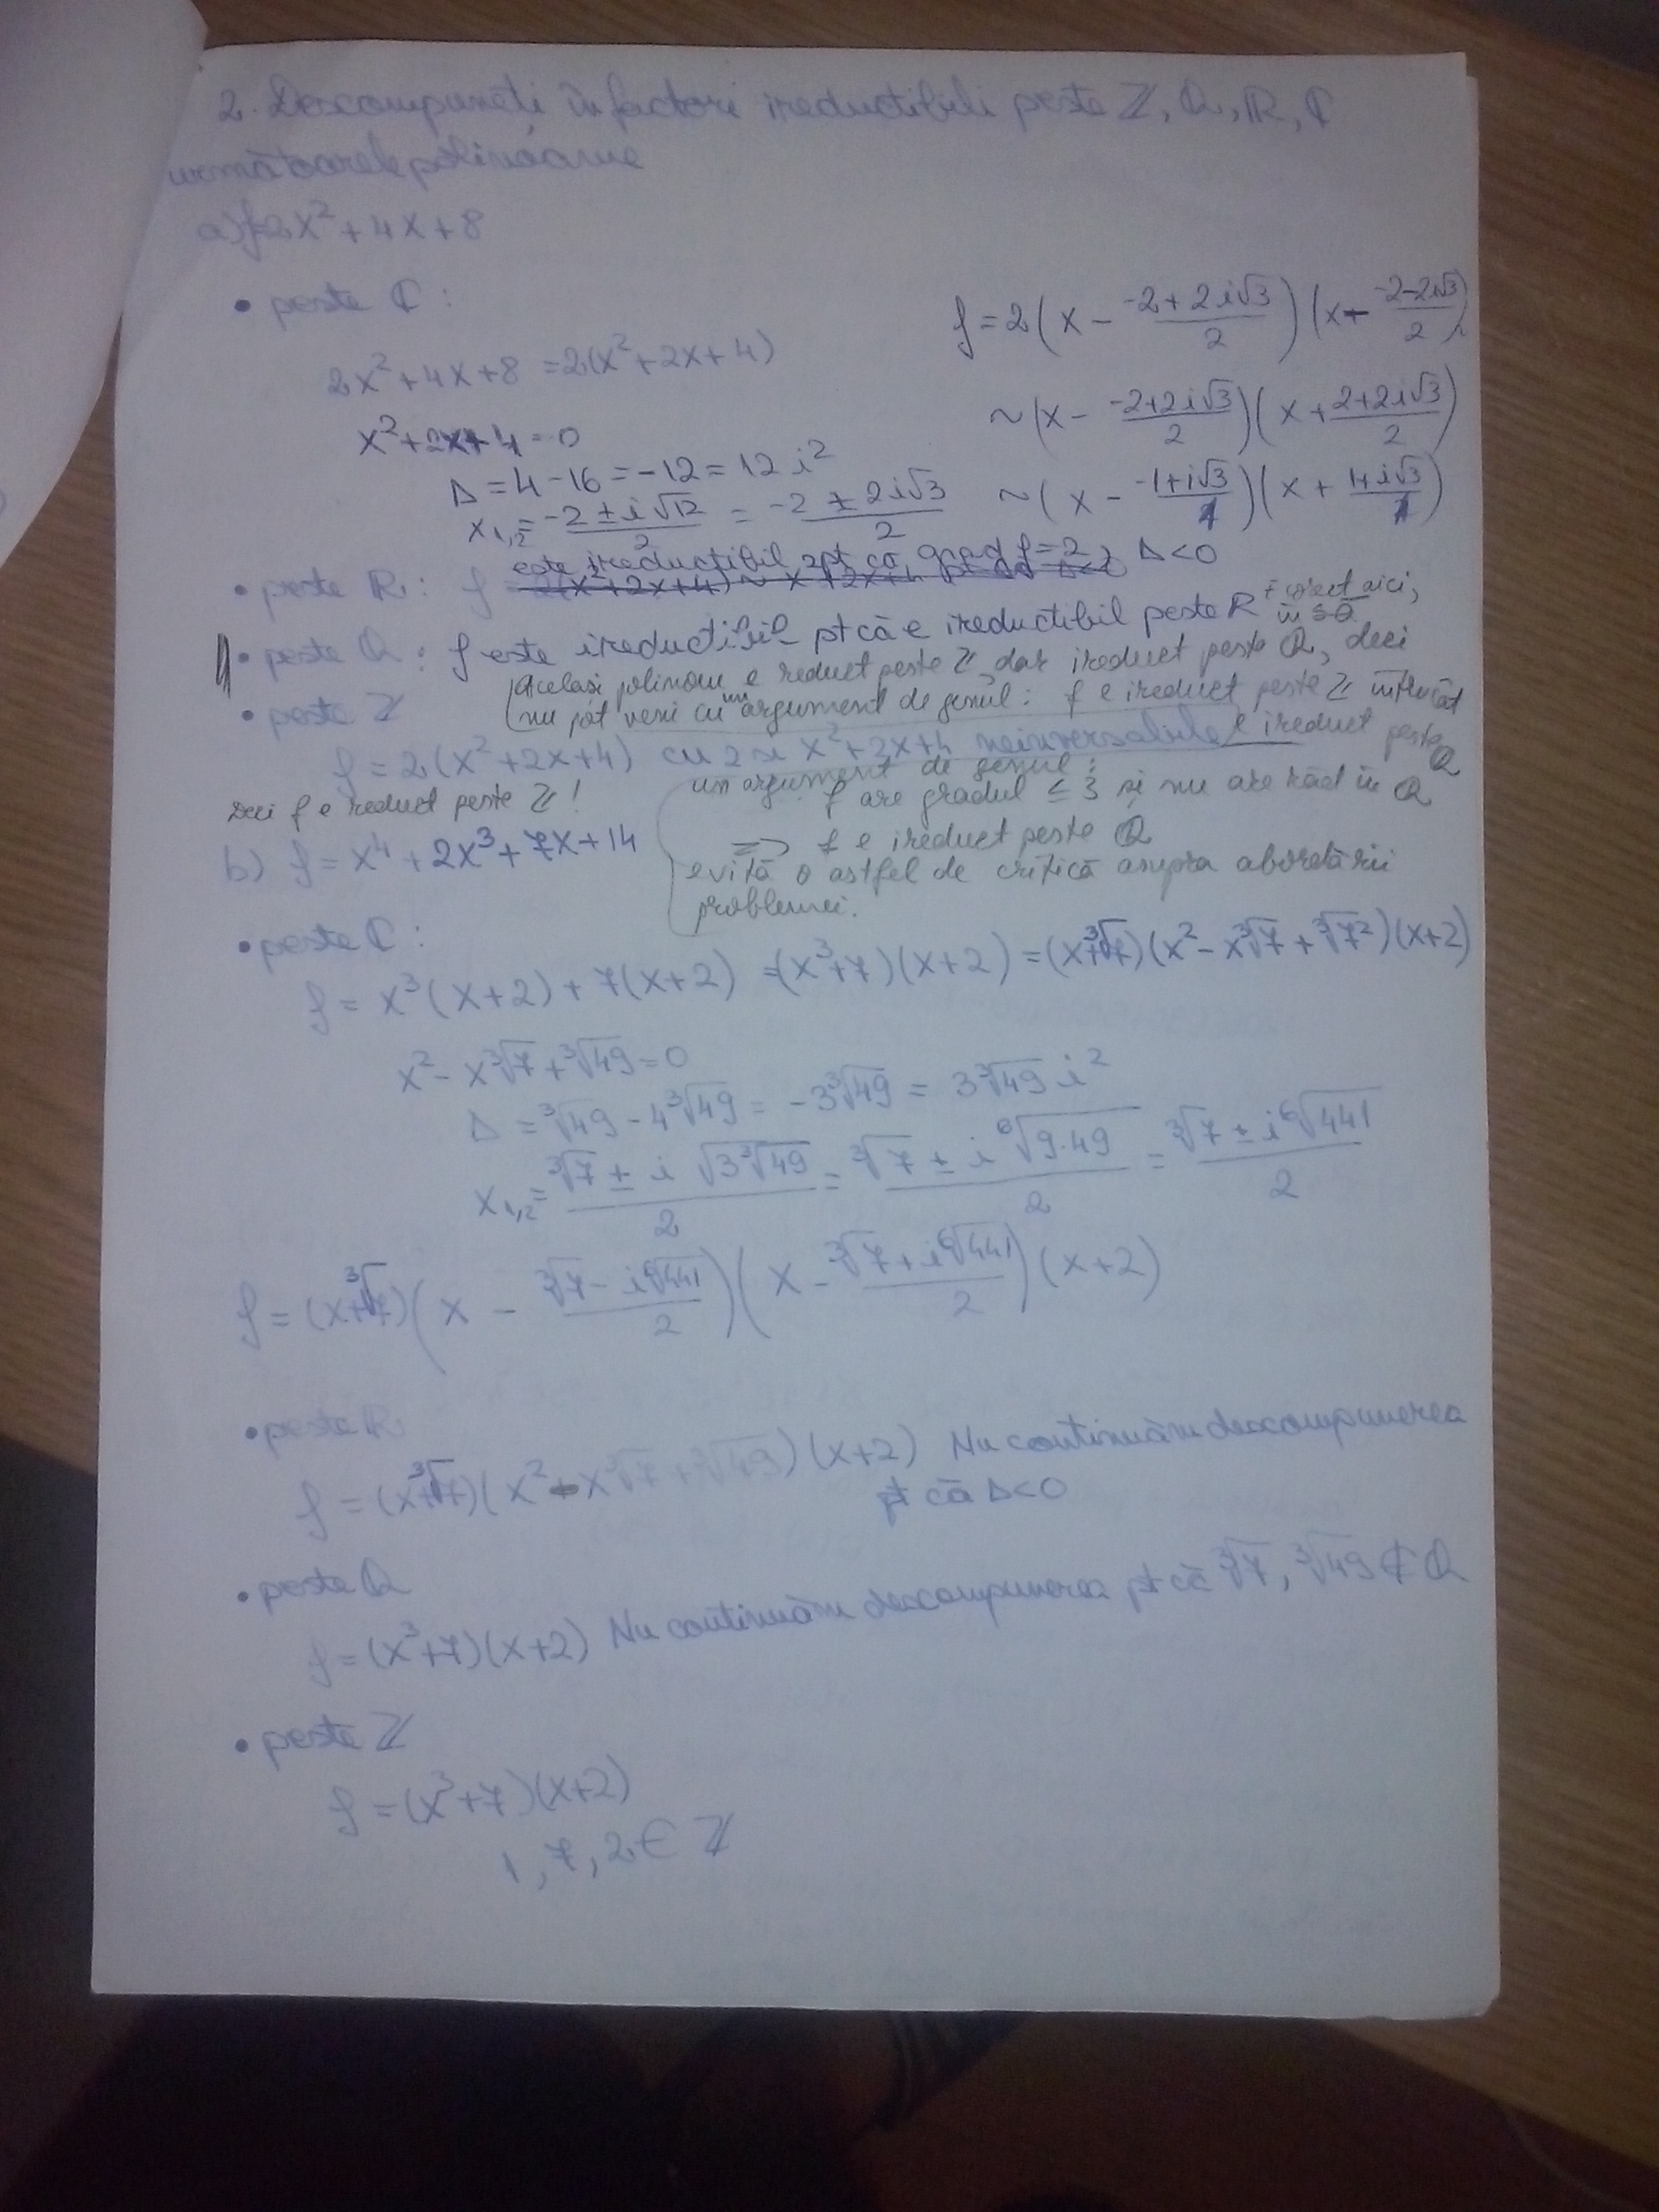 2. Descompuneți în factori ireductibili peste ℤ, ℚ, ℝ, ℂ
următoarele polinoame
a) f=2x² + 4x + 8
• peste ℂ :
2x² + 4x + 8 = 2(x² + 2x + 4)
x² + 2x + 4 = 0
Δ = 4 - 16 = -12 = 12 i²
x₁,₂ = (-2 ± i√12)/2 = (-2 ± 2i√3)/2
f = 2(x - (-2+2i√3)/2)(x - (-2-2i√3)/2)
~ (x - (-2+2i√3)/2)(x + (2+2i√3)/2)
~ (x - (-1+i√3)/1)(x + (1+i√3)/1)
• peste ℝ : f este ireductibil pt că grad f = 2, Δ<0
• peste ℚ : f este ireductibil pt că e ireductibil peste ℝ
corect aici, însă
Același polinom e reduct peste ℤ, dar ireduct peste ℚ, deci
nu pot veni cu un argument de genul: f e ireduct peste ℤ întrucât
e ireduct peste ℚ
• peste ℤ
f = 2(x² + 2x + 4) cu 2 și x² + 2x + 4 neinversabile
Deci f e reduct peste ℤ!
un argument de genul:
f are gradul ≤ 3 și nu are răd în ℚ
=> f e ireduct peste ℚ
evită o astfel de critică asupra abordării
problemei.
b) f = x⁴ + 2x³ + 7x + 14
• peste ℂ :
f = x³(x+2) + 7(x+2) = (x³+7)(x+2) = (x+∛7)(x² - x∛7 + ∛7²)(x+2)
x² - x∛7 + ∛49 = 0
Δ = ∛49 - 4∛49 = -3∛49 = 3∛49 i²
x₁,₂ = (∛7 ± i √(3∛49))/2 = (∛7 ± i ⁶√(9·49))/2 = (∛7 ± i ⁶√441)/2
f = (x+∛7)(x - (∛7 - i⁶√441)/2)(x - (∛7 + i⁶√441)/2)(x+2)
• peste ℝ
f = (x+∛7)(x² - x∛7 + ∛49)(x+2) Nu continuăm descompunerea
pt că Δ<0
• peste ℚ
f = (x³+7)(x+2) Nu continuăm descompunerea pt că ∛7, ∛49 ∉ ℚ
• peste ℤ
f = (x³+7)(x+2)
1, 7, 2 ∈ ℤ